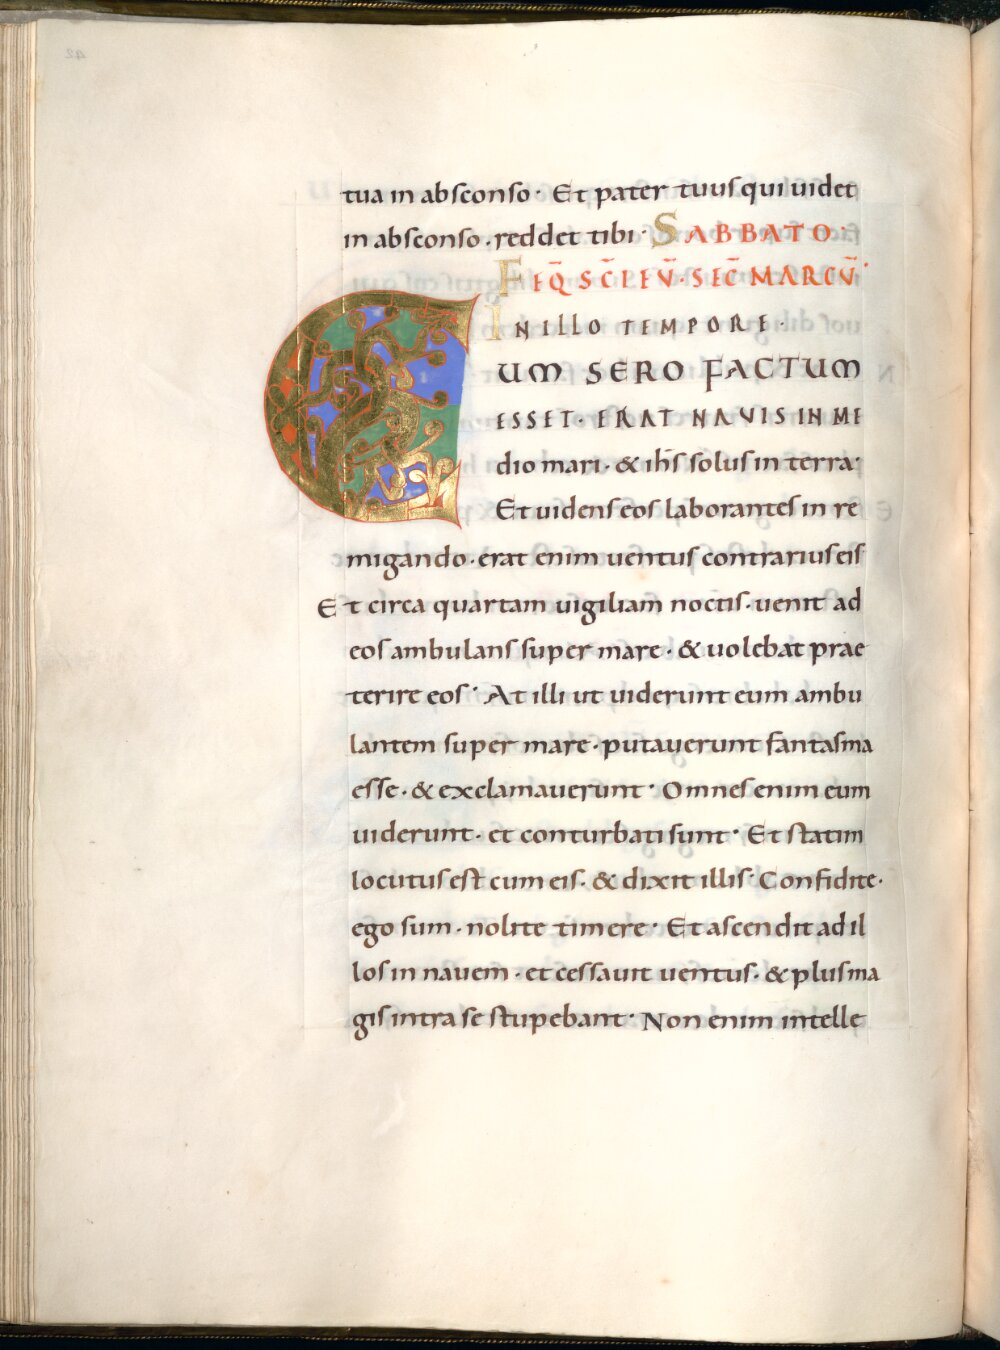 tua in absconso · Et pater tuus qui uidet
in absconso · reddet tibi · SABBATO ·
FEQ̄ SC̄I EUV̄ · SEC̄ MARCŪ ·
IN ILLO TEMPORE ·
CUM SERO FACTUM
ESSET · ERAT NAVIS IN ME
dio mari · & ihs̄ solus in terra ·
Et uidens eos laborantes in re
migando · erat enim uentus contrarius eis
Et circa quartam uigiliam noctis · uenit ad
eos ambulans super mare · & uolebat prae
terire eos · At illi ut uiderunt eum ambu
lantem super mare · putauerunt fantasma
esse · & exclamauerunt · Omnes enim eum
uiderunt · et conturbati sunt · Et statim
locutus est cum eis · & dixit illis · Confidite ·
ego sum · nolite timere · Et ascendit ad il
los in nauem · et cessauit uentus · & plus ma
gis intra se stupebant · Non enim intelle